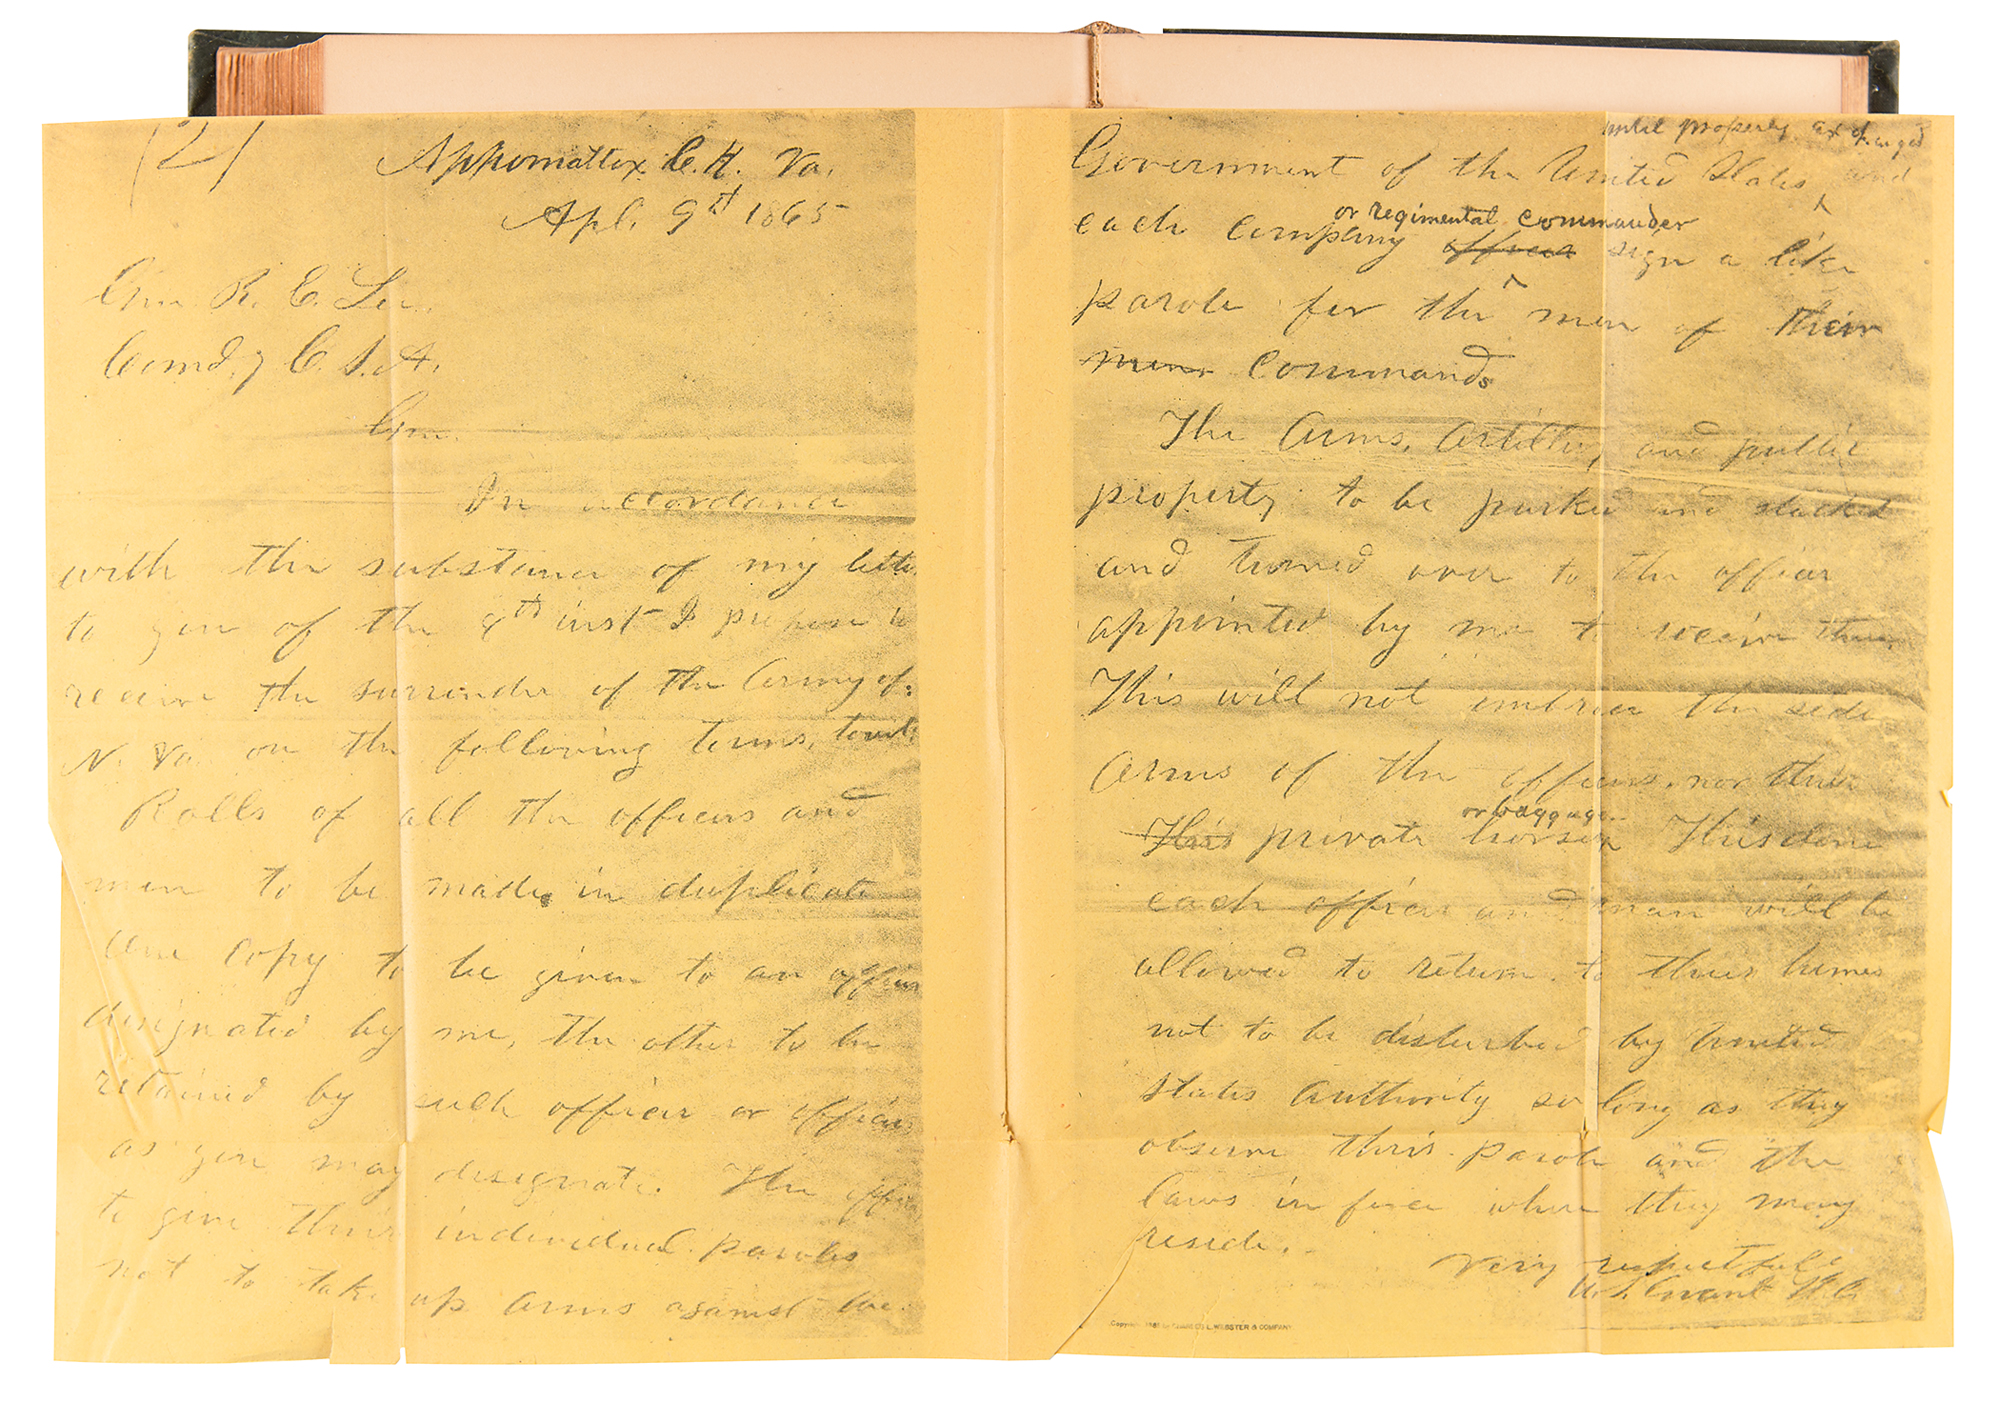 (2)
Appomattox C. H. Va.
Apl. 9th 1865
Gen R. E. Lee,
Comd.g C. S. A.
Gen.
In accordance
with the substance of my letter
to you of the 8th inst I propose to
receive the surrender of the Army of
N. Va. on the following terms, towit:
Rolls of all the officers and
men to be made in duplicate
One copy to be given to an officer
designated by me, the other to be
retained by such officer or officers
as you may designate. The officers
to give their individual paroles
not to take up arms against the
until properly exchanged
Government of the United States and
or regimental commander
each company officer sign a like
parole for the men of their
commands
The Arms, Artillery, and public
property to be parked and stacked
and turned over to the officer
appointed by me to receive them.
This will not embrace the side
Arms of the officers, nor their
or baggage
This private horses. This done
each officer and man will be
allowed to return to their homes
not to be disturbed by United
States Authority so long as they
observe their parole and the
laws in force where they may
reside.
Very respectfully
U. S. Grant Lt. Gn
Copyright 1885 by CHARLES L. WEBSTER & COMPANY